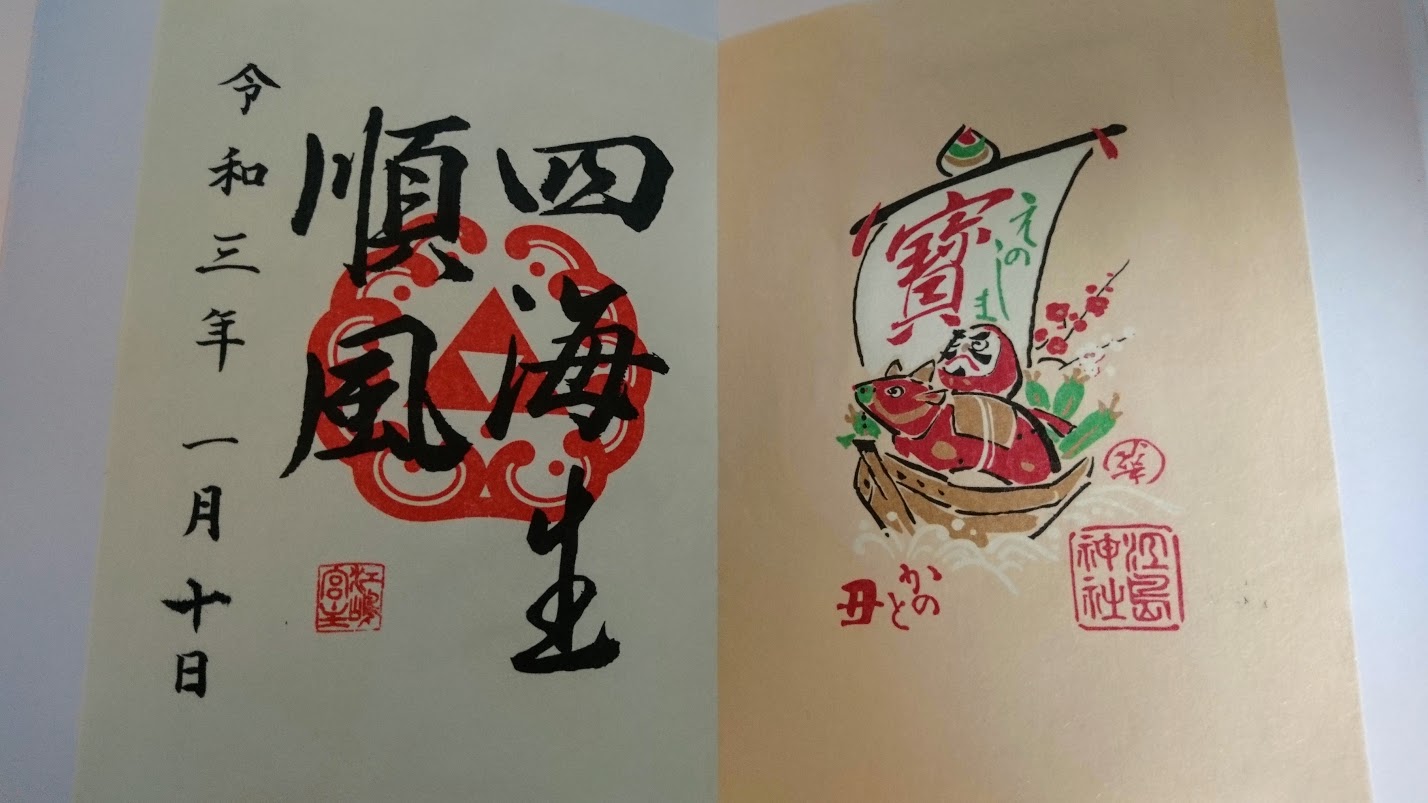 寳
えのしま
かのと
丑
江島
神社
四海生
順風
令和三年 一月 十日
江嶋
宮主